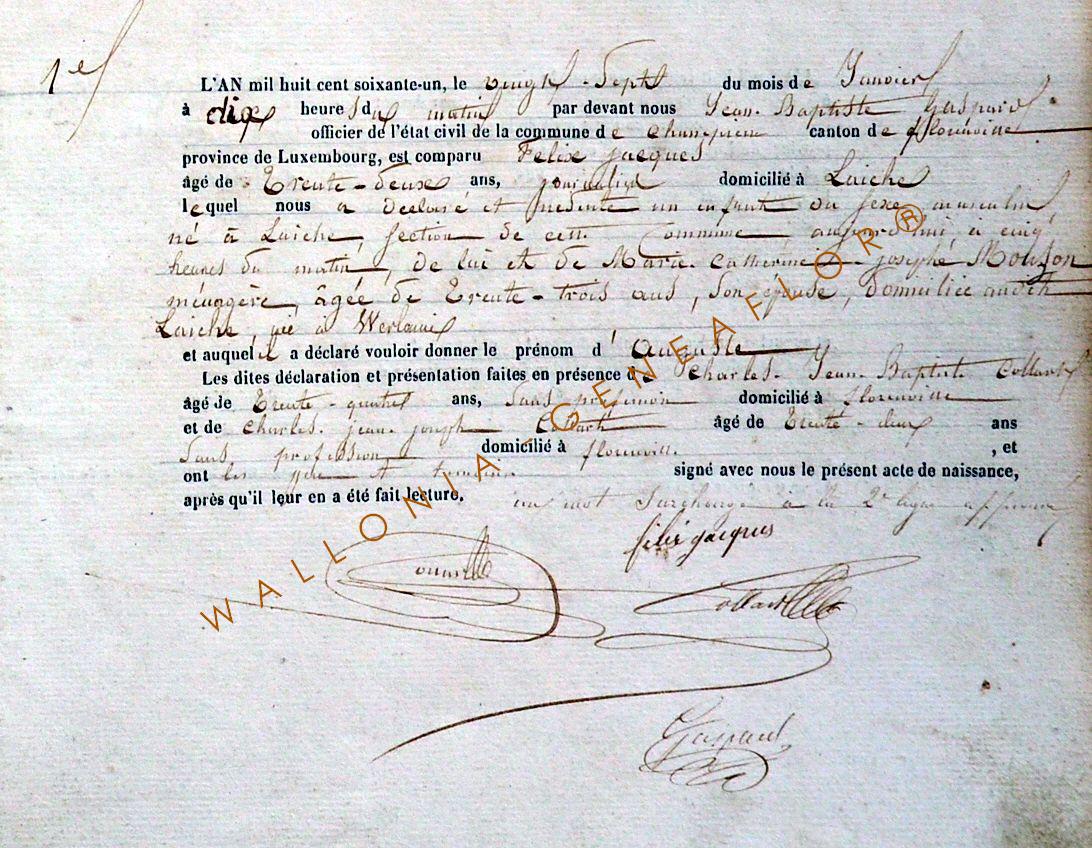 1er
L'AN mil huit cent soixante-un, le vingt-Sept du mois de Janvier
à dix heures du matin par devant nous Jean-Baptiste Gaspard
officier de l'état civil de la commune de canton de florenville
province de Luxembourg, est comparu Felix jacques
âgé de Trente-deux ans, journalier domicilié à Laiche
lequel nous a déclaré et présenté un enfant du sexe masculin
né à Laiche, section de cette Commune aujourd'hui à cinq
heures du matin, de lui et de Marie-Cathérine-josephe Mouson
ménagère, âgée de Trente-trois ans, son épouse, domiciliée audit
Laiche, née à
et auquel il a déclaré vouloir donner le prénom d'Auguste
Les dites déclaration et présentation faites en présence de Charles-Jean-Baptiste Collart
âgé de Trente-quatre ans, Sans profession domicilié à florenville
et de Charles-jean-joseph Collart âgé de Trente-deux ans
Sans profession domicilié à florenville, et
ont les père et témoins signé avec nous le présent acte de naissance,
après qu'il leur en a été fait lecture. un mot Surchargé à la 2e ligne approuvé
félix jacques
Collart
Gaspard
WALLONIA - GENEAFLOR®